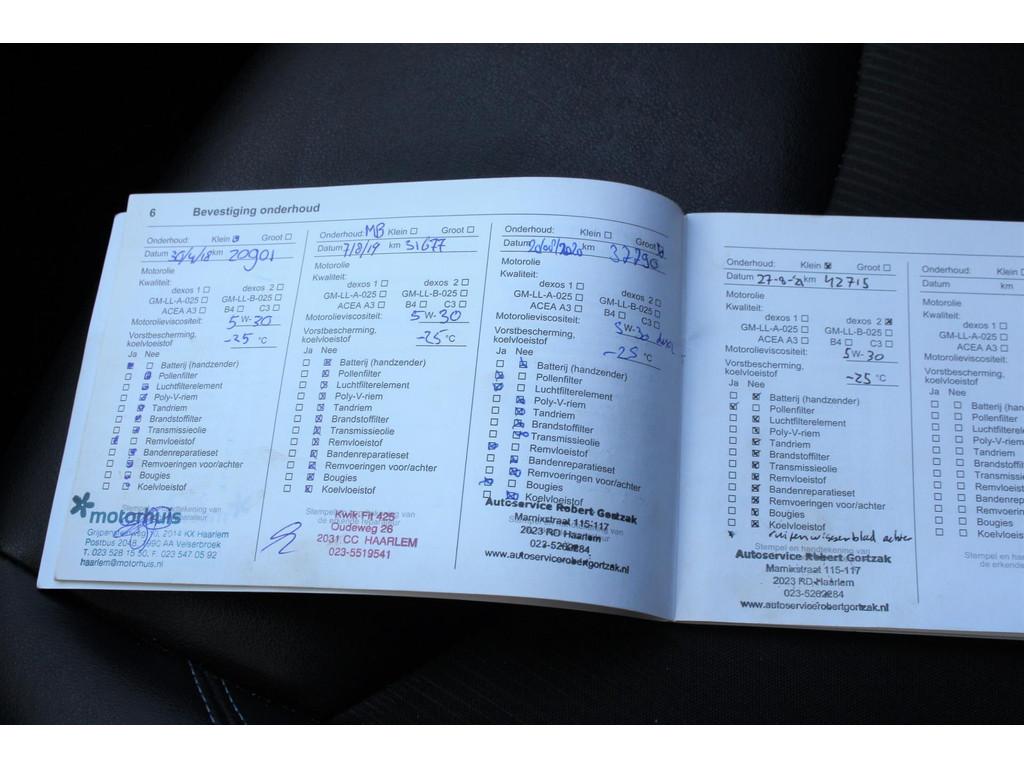 6 Bevestiging onderhoud
Onderhoud: Klein Groot
Datum 30/4/18 km 20901
Motorolie
Kwaliteit:
dexos 1 dexos 2
GM-LL-A-025 GM-LL-B-025
ACEA A3 B4 C3
Motorolieviscositeit: 5W-30
Vorstbescherming,
koelvloeistof -25 °C
Ja Nee
Batterij (handzender)
Pollenfilter
Luchtfilterelement
Poly-V-riem
Tandriem
Brandstoffilter
Transmissieolie
Remvloeistof
Bandenreparatieset
Remvoeringen voor/achter
Bougies
Koelvloeistof
motorhuis
2014 KX Haarlem
Postbus 2048, 1990 AA Velserbroek
T. 023 528 15 50, F. 023 547 05 92
haarlem@motorhuis.nl
Onderhoud: MB Klein Groot
Datum 7/8/19 km 31677
Motorolie
Kwaliteit:
dexos 1 dexos 2
GM-LL-A-025 GM-LL-B-025
ACEA A3 B4 C3
Motorolieviscositeit: 5W-30
Vorstbescherming,
koelvloeistof -25 °C
Ja Nee
Batterij (handzender)
Pollenfilter
Luchtfilterelement
Poly-V-riem
Tandriem
Brandstoffilter
Transmissieolie
Remvloeistof
Bandenreparatieset
Remvoeringen voor/achter
Bougies
Koelvloeistof
Kwik Fit 425
Oudeweg 26
2031 CC HAARLEM
023-5519541
Onderhoud: Klein Groot
Datum 20/08/2020 km 37790
Motorolie
Kwaliteit:
dexos 1 dexos 2
GM-LL-A-025 GM-LL-B-025
ACEA A3 B4 C3
Motorolieviscositeit: 5W-30
Vorstbescherming,
koelvloeistof -25 °C
Ja Nee
Batterij (handzender)
Pollenfilter
Luchtfilterelement
Poly-V-riem
Tandriem
Brandstoffilter
Transmissieolie
Remvloeistof
Bandenreparatieset
Remvoeringen voor/achter
Bougies
Koelvloeistof
Autoservice Robert Gortzak
Marnixstraat 115-117
2023 RD Haarlem
023-5269284
www.autoservicerobertgortzak.nl
Onderhoud: Klein Groot
Datum 27-8-21 km 42715
Motorolie
Kwaliteit:
dexos 1 dexos 2
GM-LL-A-025 GM-LL-B-025
ACEA A3 B4 C3
Motorolieviscositeit: 5W-30
Vorstbescherming,
koelvloeistof -25 °C
Ja Nee
Batterij (handzender)
Pollenfilter
Luchtfilterelement
Poly-V-riem
Tandriem
Brandstoffilter
Transmissieolie
Remvloeistof
Bandenreparatieset
Remvoeringen voor/achter
Bougies
Koelvloeistof
ruitenwisserblad achter
Stempel en handtekening van
Autoservice Robert Gortzak
Marnixstraat 115-117
2023 RD Haarlem
023-5269284
www.autoservicerobertgortzak.nl
Onderhoud: Klein
Datum km
Motorolie
Kwaliteit:
dexos 1
GM-LL-A-025
ACEA A3
Motorolieviscositeit:
Vorstbescherming,
koelvloeistof
Ja Nee
Batterij (han
Pollenfilter
Luchtfiltere
Poly-V-riem
Tandriem
Brandstoffi
Transmissi
Remvloeist
Bandenrep
Remvoerin
Bougies
Koelvloeist
Stempel en han
de erkende